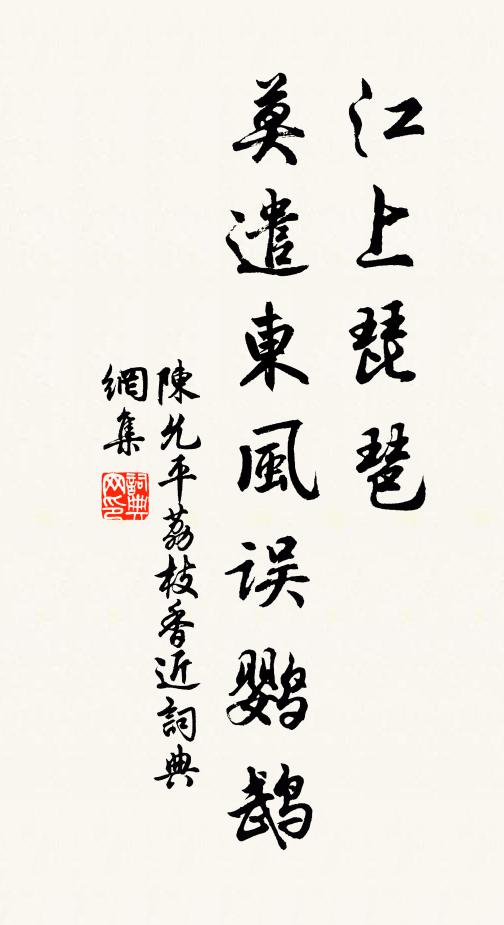 江上琵琶
莫遣東風误鹦鹉
陳允平荔枝香近詞典
網集
詞典
网印